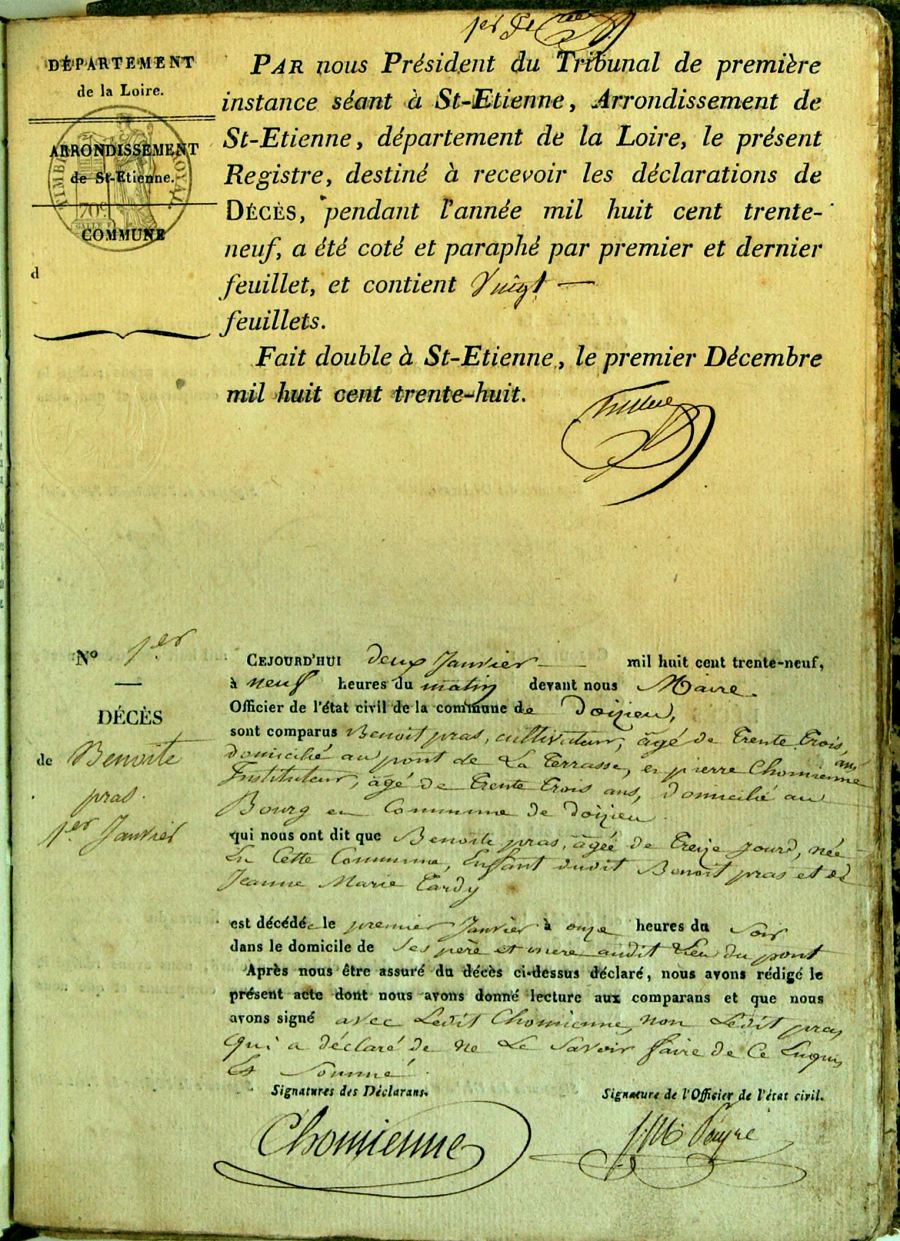 per f.et
DÉPARTEMENT
de la Loire.
ARRONDISSEMENT
de St-Etienne.
TIMBRE ROYAL
70c
COMMUNE
d
PAR nous Président du Tribunal de première
instance séant à St-Etienne, Arrondissement de
St-Etienne, département de la Loire, le présent
Registre, destiné à recevoir les déclarations de
DÉCÈS, pendant l'année mil huit cent trente-
neuf, a été coté et paraphé par premier et dernier
feuillet, et contient Vingt —
feuillets.
Fait double à St-Etienne, le premier Décembre
mil huit cent trente-huit.
No 1.er
DÉCÈS
de Benoite
pras.
1.er Janvier
CEJOURD'HUI deux Janvier — mil huit cent trente-neuf,
à neuf heures du matin devant nous Maire.
Officier de l'état civil de la commune de Doizieu,
sont comparus Benoit pras, cultivateur, âgé de Trente Trois ans,
domicilié au pont de La Terrasse, et pierre Chomienne
Instituteur, âgé de Trente Trois ans, domicilié au
Bourg et Commune de Doizieu.
qui nous ont dit que Benoite pras, âgée de Treize jours, née
En Cette Commune, Enfant dudit Benoit pras et de
Jeanne Marie Tardy
est décédée le premier Janvier à onze heures du Soir
dans le domicile de Ses père et mère audit Lieu du pont
Après nous être assuré du décès ci-dessus déclaré, nous avons rédigé le
présent acte dont nous avons donné lecture aux comparans et que nous
avons signé avec Ledit Chomienne, non Ledit pras,
qui a déclaré de ne Le Savoir faire de Ce Enquis
Et Sommé.
Signatures des Déclarans. Signature de l'Officier de l'état civil.
Chomienne